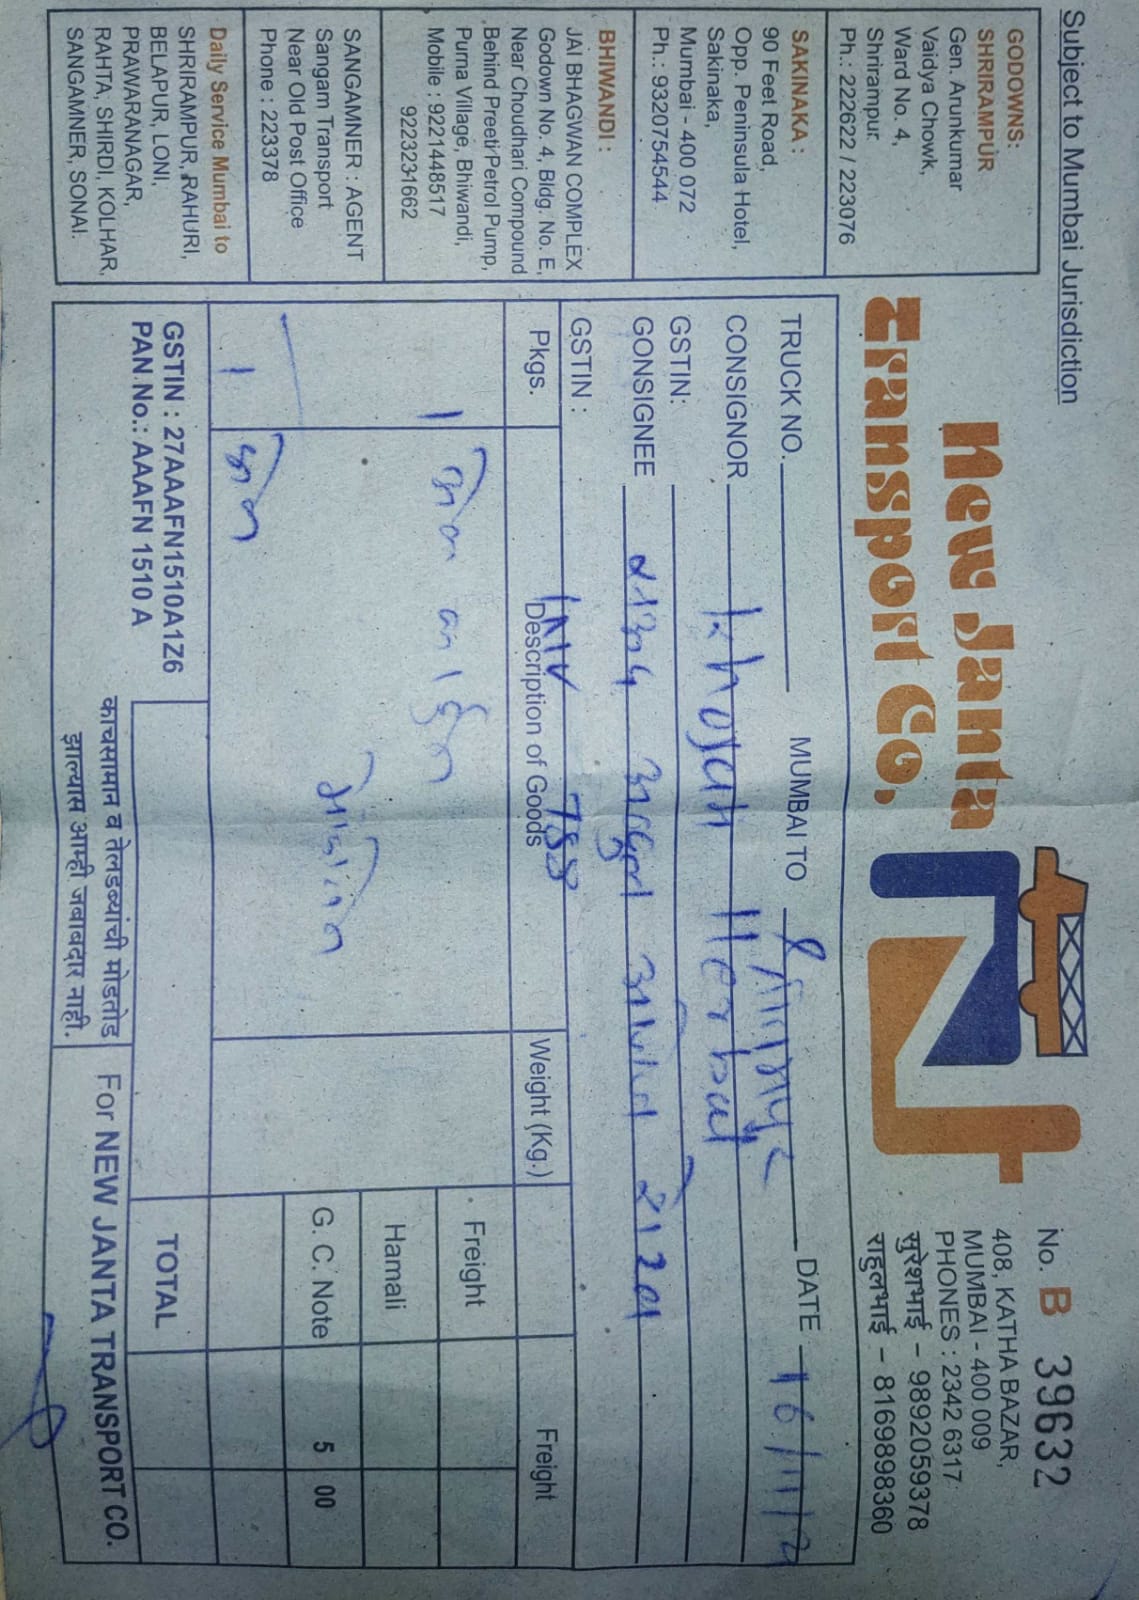 Subject to Mumbai Jurisdiction
New Janta
Transport Co.
No. B 39632
408, KATHA BAZAR,
MUMBAI - 400 009
PHONES : 2342 6317
सुरेशभाई – 9892059378
राहुलभाई – 8169898360
GODOWNS:
SHRIRAMPUR
Gen. Arunkumar
Vaidya Chowk,
Ward No. 4,
Shrirampur.
Ph.: 222622 / 223076
SAKINAKA :
90 Feet Road,
Opp. Peninsula Hotel,
Sakinaka,
Mumbai - 400 072
Ph.: 9320754544
BHIWANDI :
JAI BHAGWAN COMPLEX
Godown No. 4, Bldg. No. E,
Near Choudhari Compound
Behind Preeti Petrol Pump,
Purna Village, Bhiwandi,
Mobile : 9221448517
9223231662
SANGAMNER : AGENT
Sangam Transport
Near Old Post Office
Phone : 223378
Daily Service Mumbai to
SHRIRAMPUR, RAHURI,
BELAPUR, LONI,
PRAWARANAGAR,
RAHTA, SHIRDI, KOLHAR,
SANGAMNER, SONAI.
TRUCK NO. MUMBAI TO DATE 16/11/2
CONSIGNOR Khojati Herbal
GSTIN:
GONSIGNEE
GSTIN : INV 788
Pkgs. Description of Goods Weight (Kg.) Freight
1 Freight
Hamali
G. C. Note 5 00
1
TOTAL
GSTIN : 27AAAFN1510A1Z6
PAN No.: AAAFN 1510 A
काचसामान व तेलडब्यांची मोडतोड
झाल्यास आम्ही जबाबदार नाही.
For NEW JANTA TRANSPORT CO.